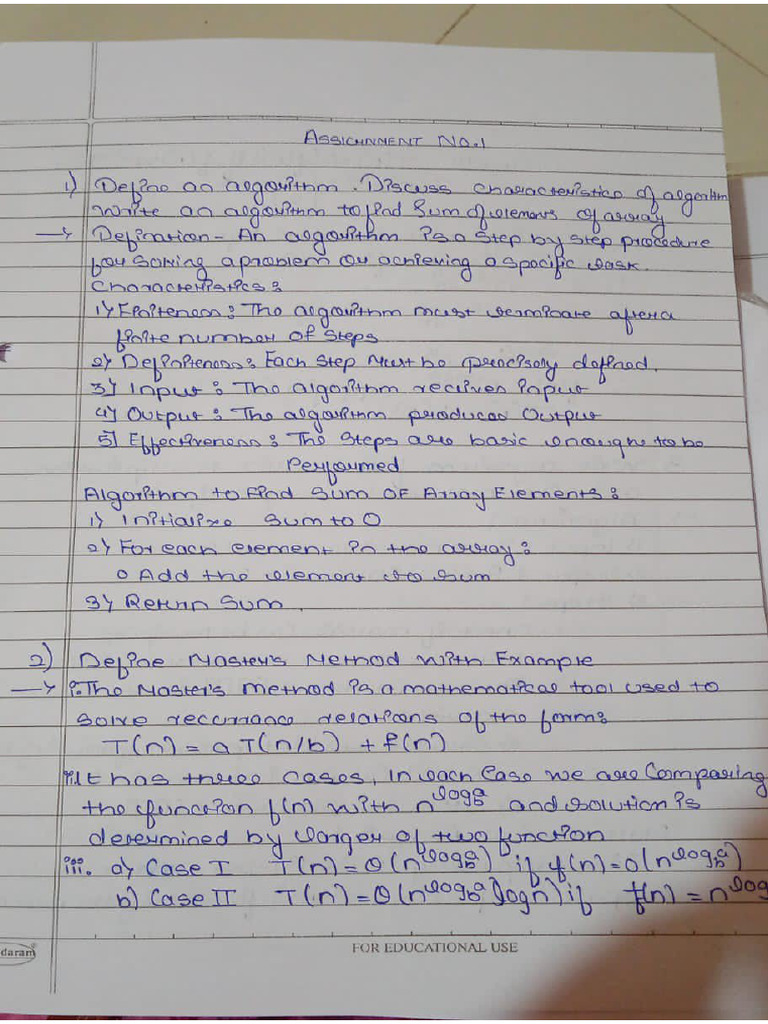 ASSIGNMENT NO.1
1) Define an algorithm. Discuss characteristics of algorithm
Write an algorithm to find Sum of elements of array
→ Defination - An algorithm is a step by step procedure
for solving a problem or achieving a specific task.
Characteristics :
1) Finiteness : The algorithm must terminate after a
finite number of steps
2) Definiteness : Each step must be precisely defined.
3) Input : The algorithm receives input
4) Output : The algorithm produces output
5) Effectiveness : The steps are basic enough to be
Performed
Algorithm to find Sum OF Array Elements :
1) Initialize sum to 0
2) For each element in the array :
o Add the element to sum
3) Return Sum.
2) Define Master's Method with Example
→ i. The Master's method is a mathematical tool used to
solve recurrance relations of the form :
T(n) = a T(n/b) + f(n)
ii. It has three cases, in each case we are comparing
the function f(n) with n^log_b^a and solution is
determined by larger of two function
iii. a) Case I T(n) = θ(n^log_b^a) if f(n) = o(n^log_b^a)
b) Case II T(n) = θ(n^log_b^a log n) if f(n) = n^log
daram
FOR EDUCATIONAL USE